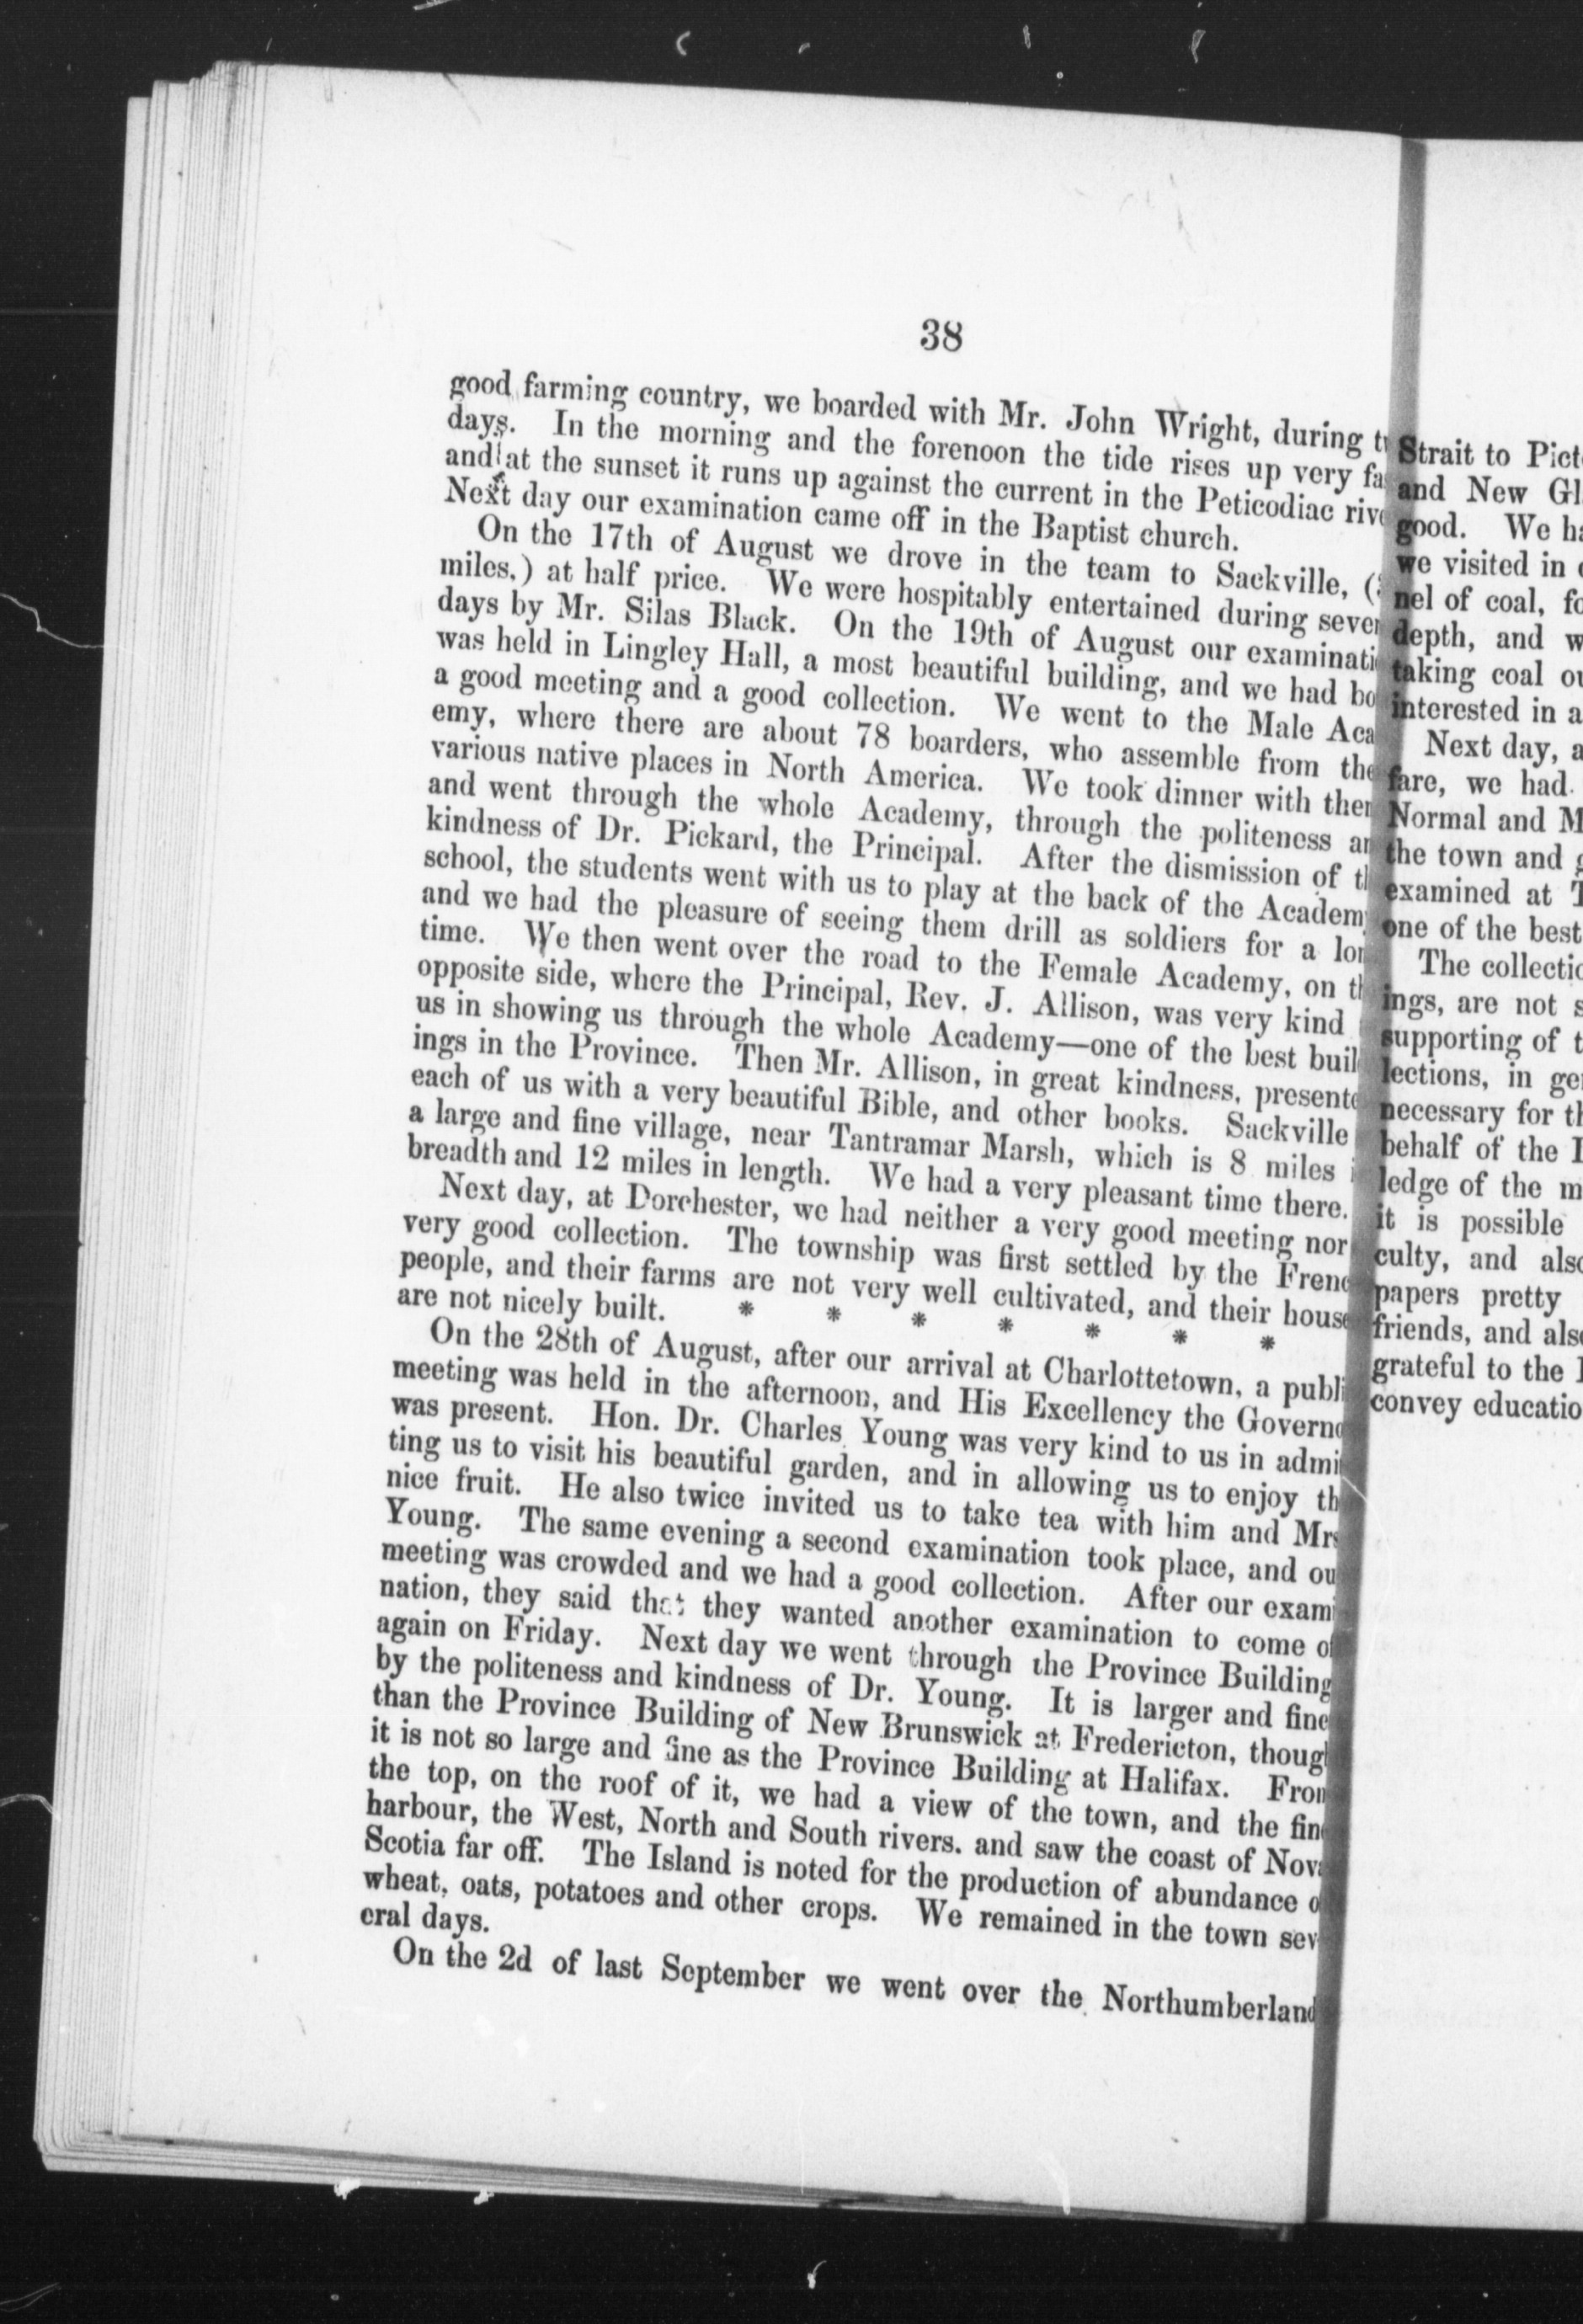 38
good farming country, we boarded with Mr. John Wright, during
days. In the morning and the forenoon the tide rises up very
and at the sunset it runs up against the current in the Peticodiac
Next day our examination came off in the Baptist church.
On the 17th of August we drove in the team to Sackville,
miles,) at half price. We were hospitably entertained during
days by Mr. Silas Black. On the 19th of August our
was held in Lingley Hall, a most beautiful building, and we had
a good meeting and a good collection. We went to the Male Aca
emy, where there are about 78 boarders, who assemble from
various native places in North America. We took dinner with
and went through the whole Academy, through the politeness
kindness of Dr. Pickard, the Principal. After the dismission of
school, the students went with us to play at the back of the Academ
and we had the pleasure of seeing them drill as soldiers for a
time. We then went over the road to the Female Academy, on
opposite side, where the Principal, Rev. J. Allison, was very kind
us in showing us through the whole Academy—one of the best buil
ings in the Province. Then Mr. Allison, in great kindness, presente
each of us with a very beautiful Bible, and other books. Sackville
a large and fine village, near Tantramar Marsh, which is 8 miles
breadth and 12 miles in length. We had a very pleasant time there.
Next day, at Dorchester, we had neither a very good meeting nor
very good collection. The township was first settled by the Frenc
people, and their farms are not very well cultivated, and their house
are not nicely built. * * * * * * *
On the 28th of August, after our arrival at Charlottetown, a publi
meeting was held in the afternoon, and His Excellency the Governo
was present. Hon. Dr. Charles Young was very kind to us in admi
ting us to visit his beautiful garden, and in allowing us to enjoy th
nice fruit. He also twice invited us to take tea with him and Mrs
Young. The same evening a second examination took place, and ou
meeting was crowded and we had a good collection. After our exami
nation, they said that they wanted another examination to come of
again on Friday. Next day we went through the Province Building
by the politeness and kindness of Dr. Young. It is larger and fine
than the Province Building of New Brunswick at Fredericton, thoug
it is not so large and fine as the Province Building at Halifax. From
the top, on the roof of it, we had a view of the town, and the fin
harbour, the West, North and South rivers. and saw the coast of Nov
Scotia far off. The Island is noted for the production of abundance o
wheat, oats, potatoes and other crops. We remained in the town sev
eral days.
On the 2d of last September we went over the Northumberland
Strait to Pict
and New Gl
good. We ha
we visited in
nel of coal, fo
depth, and w
taking coal ou
interested in a
Next day, a
fare, we had
Normal and M
the town and
examined at
one of the best
The collectio
ings, are not s
supporting of t
lections, in ge
necessary for th
behalf of the I
ledge of the m
it is possible
culty, and also
papers pretty
friends, and also
grateful to the
convey educatio